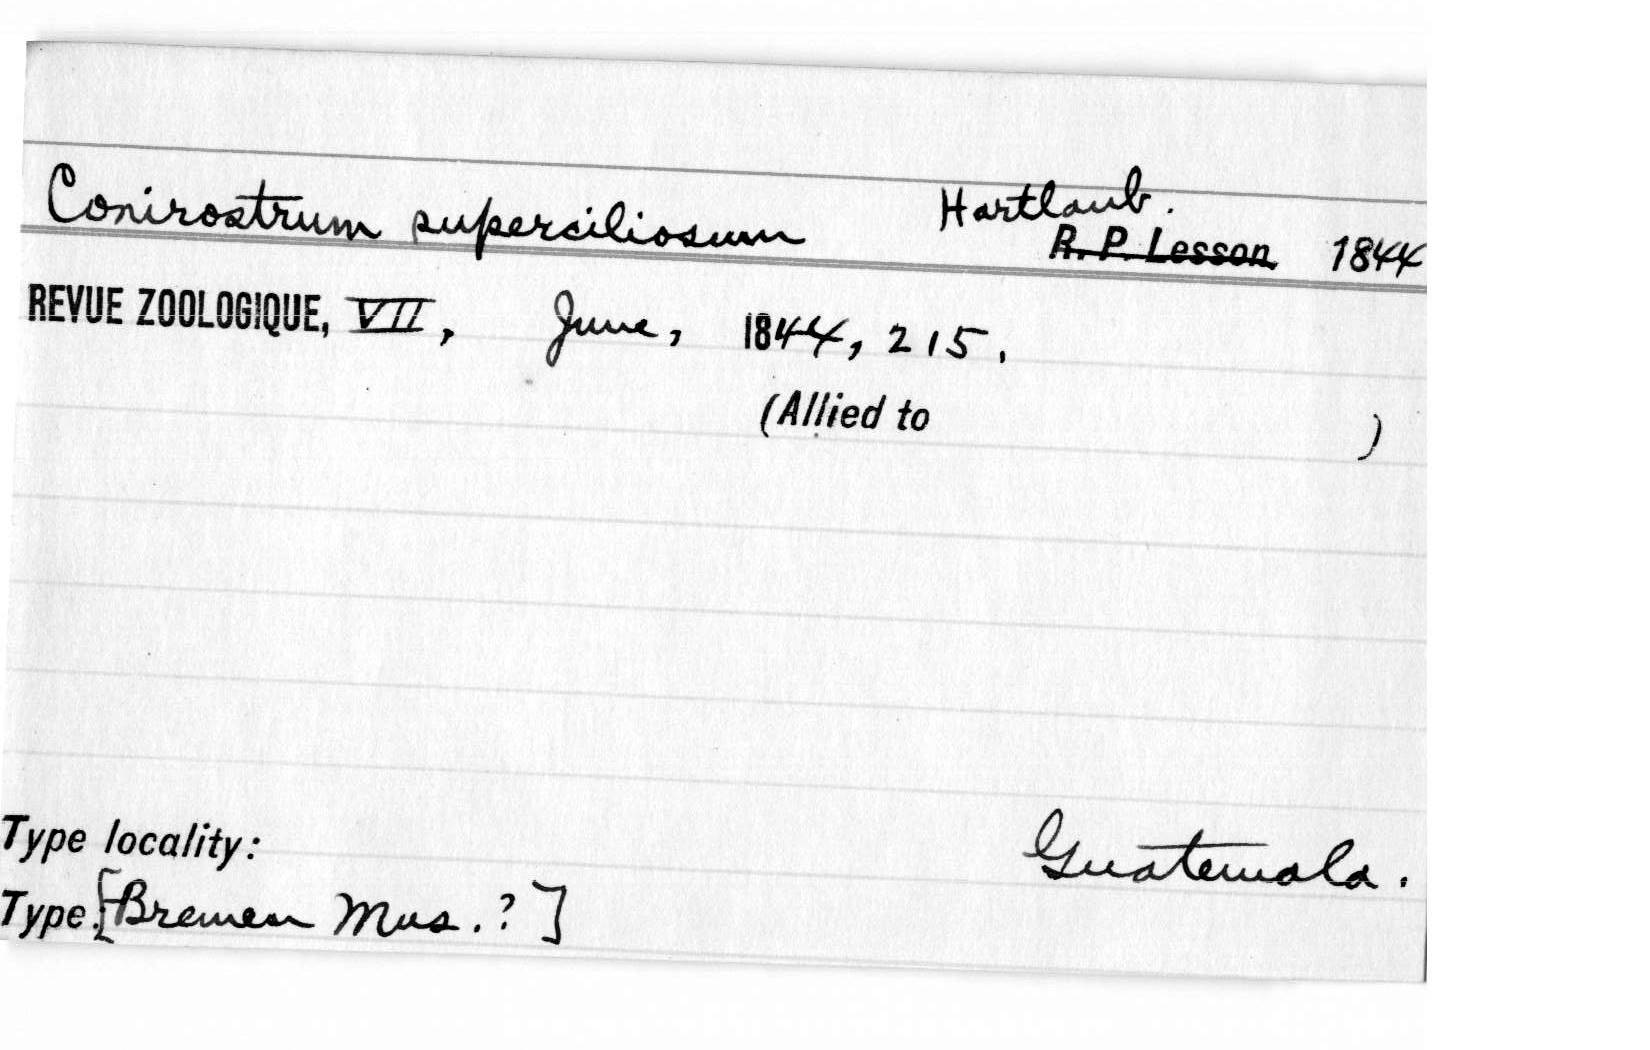 Conirostrum superciliosum Hartlaub.
R. P. Lesson 1844
REVUE ZOOLOGIQUE, VII, June, 1844, 215.
(Allied to )
Type locality: Guatemala.
Type: [Bremen Mus. ?]